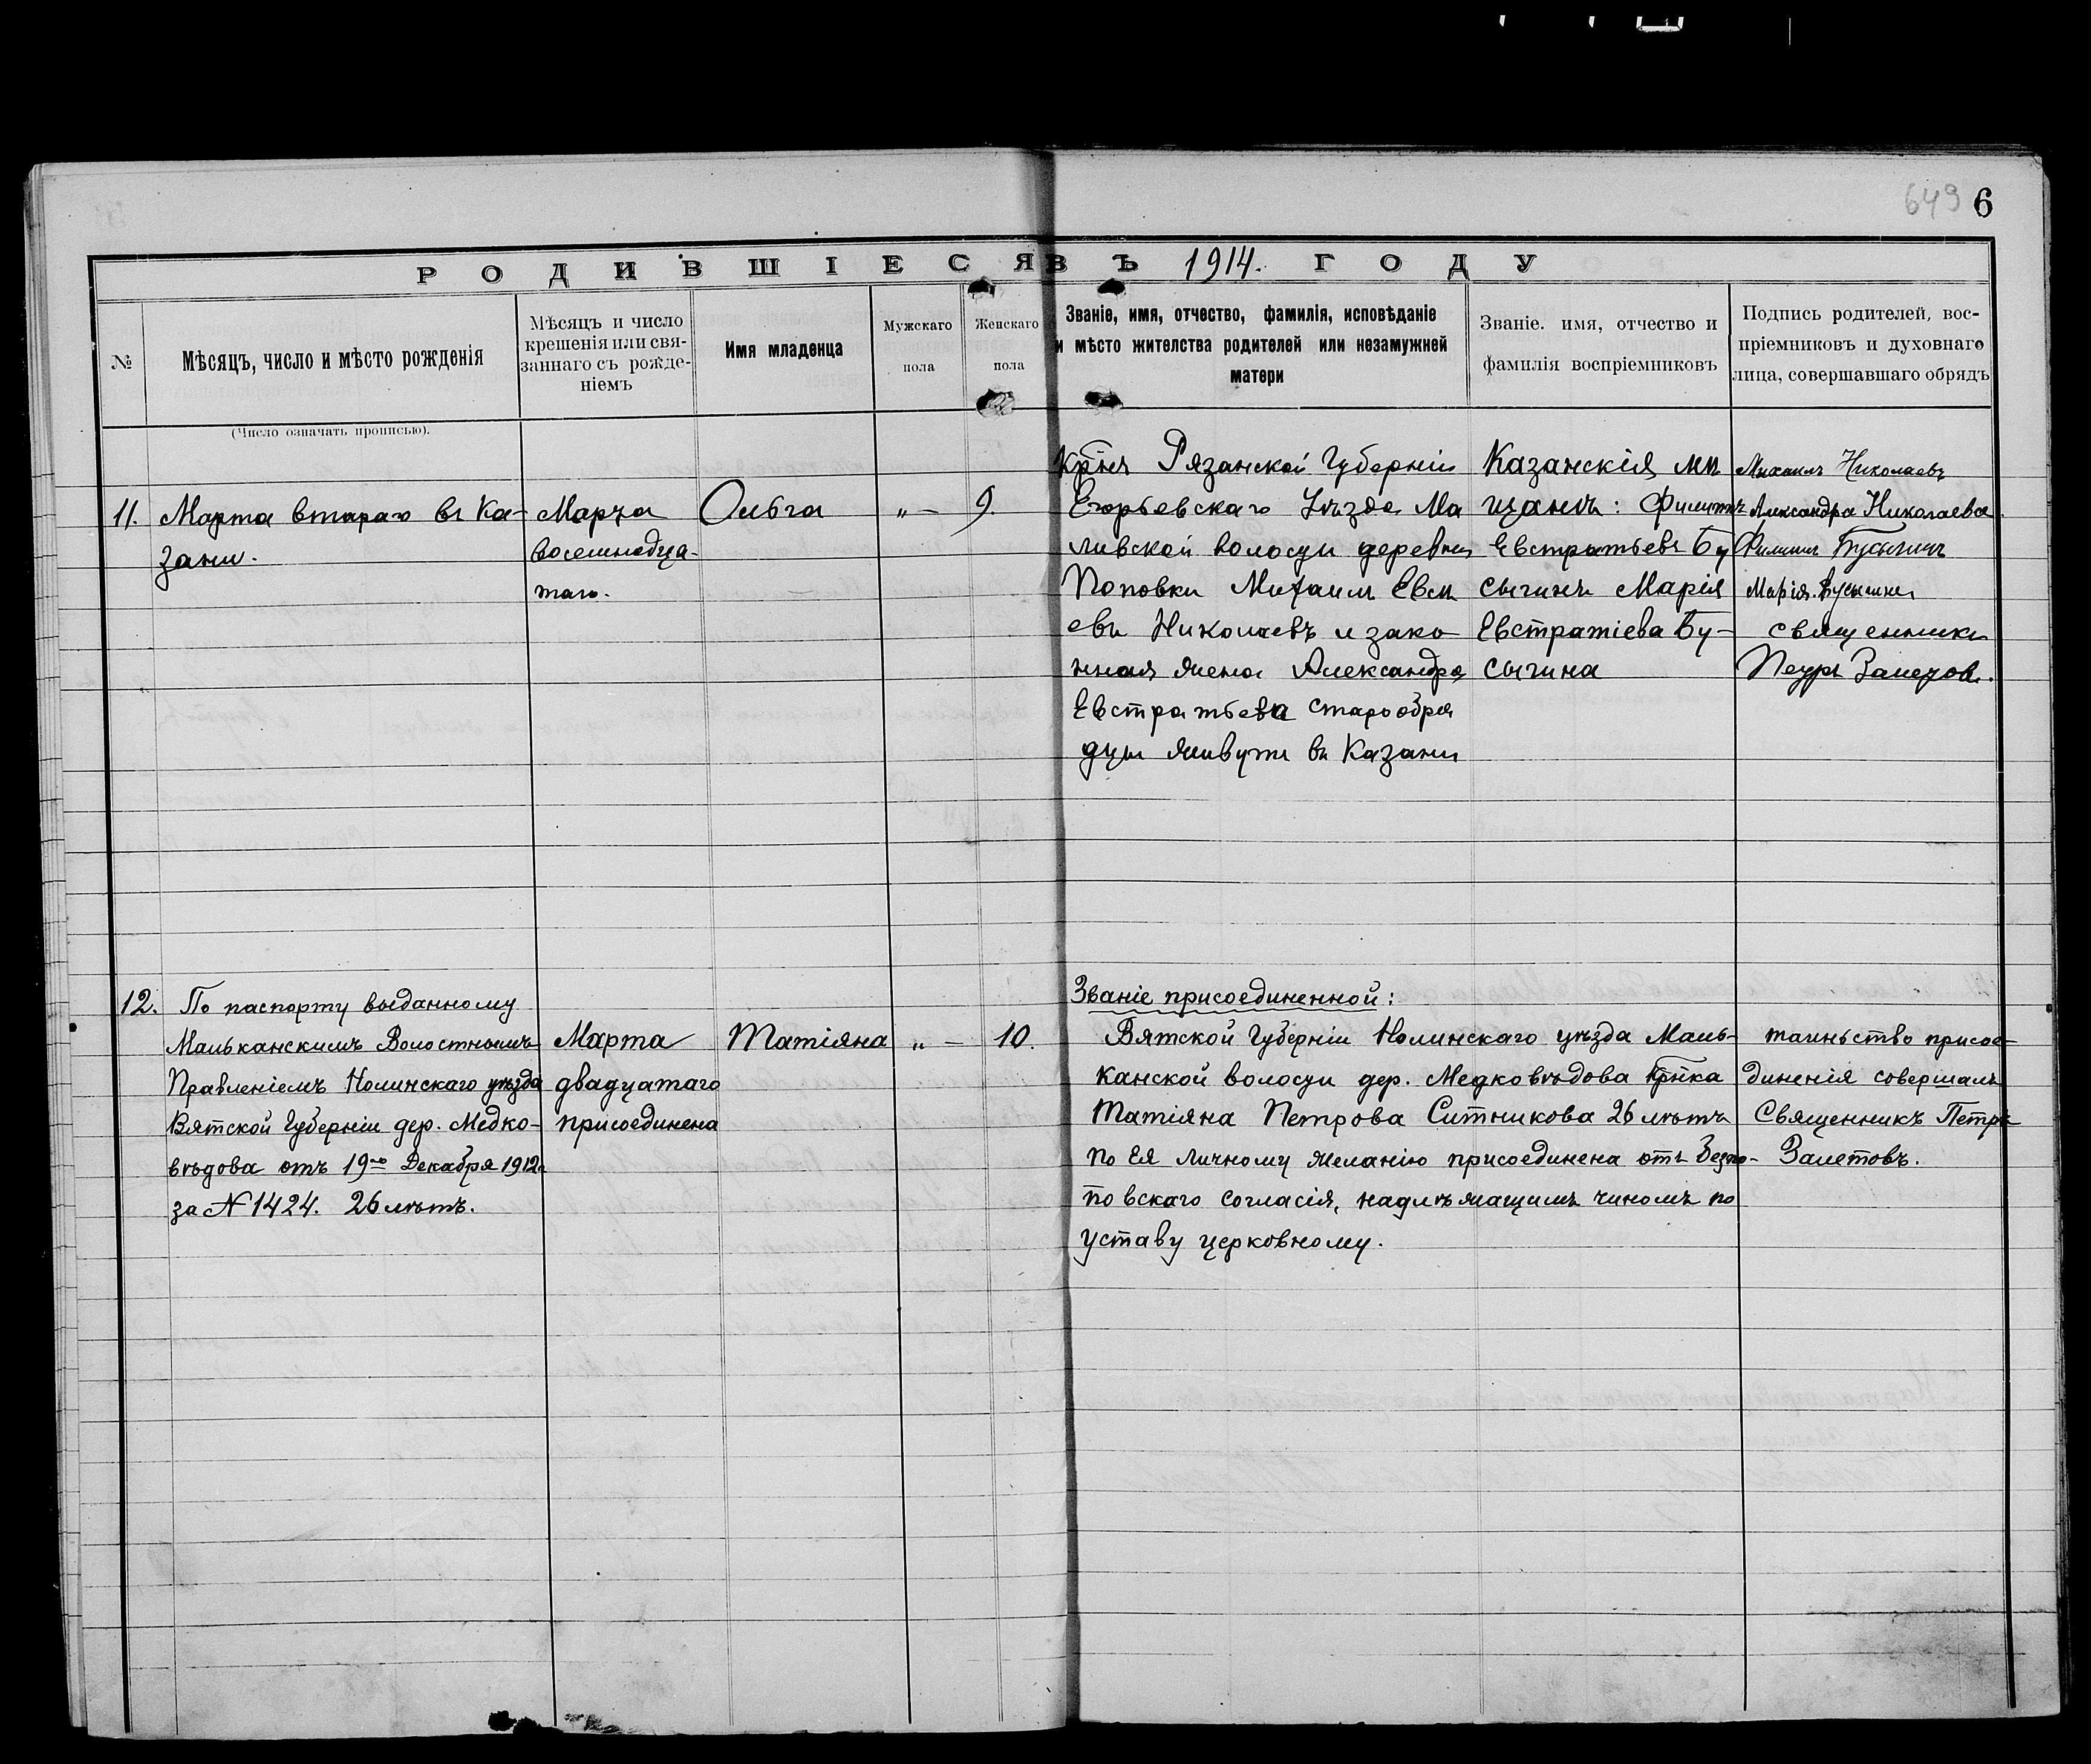 649 6
РОДИВШІЕСЯ ВЪ 1914. ГОДУ
№
Мѣсяцъ, число и мѣсто рожденія
Мѣсяцъ и число
крещенія или свя-
заннаго съ рожде-
ніемъ
Имя младенца
Мужскаго
пола
Женскаго
пола
Званіе, имя, отчество, фамилія, исповѣданіе
и мѣсто жителства родителей или незамужней
матери
Званіе. имя, отчество и
фамилія воспріемниковъ
Подпись родителей, вос-
пріемниковъ и духовнаго
лица, совершавшаго обрядъ
(Число означать прописью).
11.
Марта втараго въ Ка-
зани.
Марта
восемнадца-
таго.
Ольга
„ —
9.
Крṉнъ Рязанской Губерніи
Егорьевскаго Уѣзда Ма
ливской волости деревни
Поповки Михаилъ Евсѣ
евъ Николаевъ и зако
нная жена Александра
Евстратьева старообря
дцы живутъ въ Казани
Казанскія мѣ
щанѣ: Филиппъ
Евстратьевъ Бу
сыгинъ Марія
Евстратіева Бу-
сыгина
Михаилъ Николаевъ
Александра Николаева.
Филиппъ Бусыгинъ
Марія Бусыгина
священникъ
Петръ Залетовъ.
12.
По паспорту выданному
Мальканскимъ Волостнымъ
Правленіемъ Нолинскаго уѣзда
Вятской Губерніи дер. Медко-
вѣдова отъ 19го Декабря 1912г.
за № 1424. 26 лѣтъ.
Марта
двадцатаго
присоединена
Татіяна
„ —
10.
Званіе присоединенной:
Вятской Губерніи Нолинскаго уѣзда Маль-
канской волости дер. Медковѣдова крṉка
Татіяна Петрова Ситникова 26 лѣтъ
по Ея личному желанію присоединена отъ Безпо-
повскаго согласія, надлѣжащимъ чиномъ по
уставу церковному.
таиньство присое-
диненія совершалъ
Священникъ Петръ
Залетовъ.